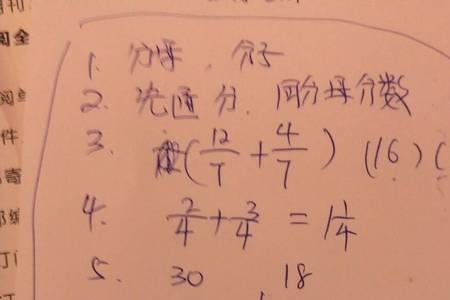 1. 分母, 分子
2. 先通分. 同分母分数
3. (12/7 + 4/7) (16) (
4. 2/4 + 3/4 = 1 1/4
5. 30 18